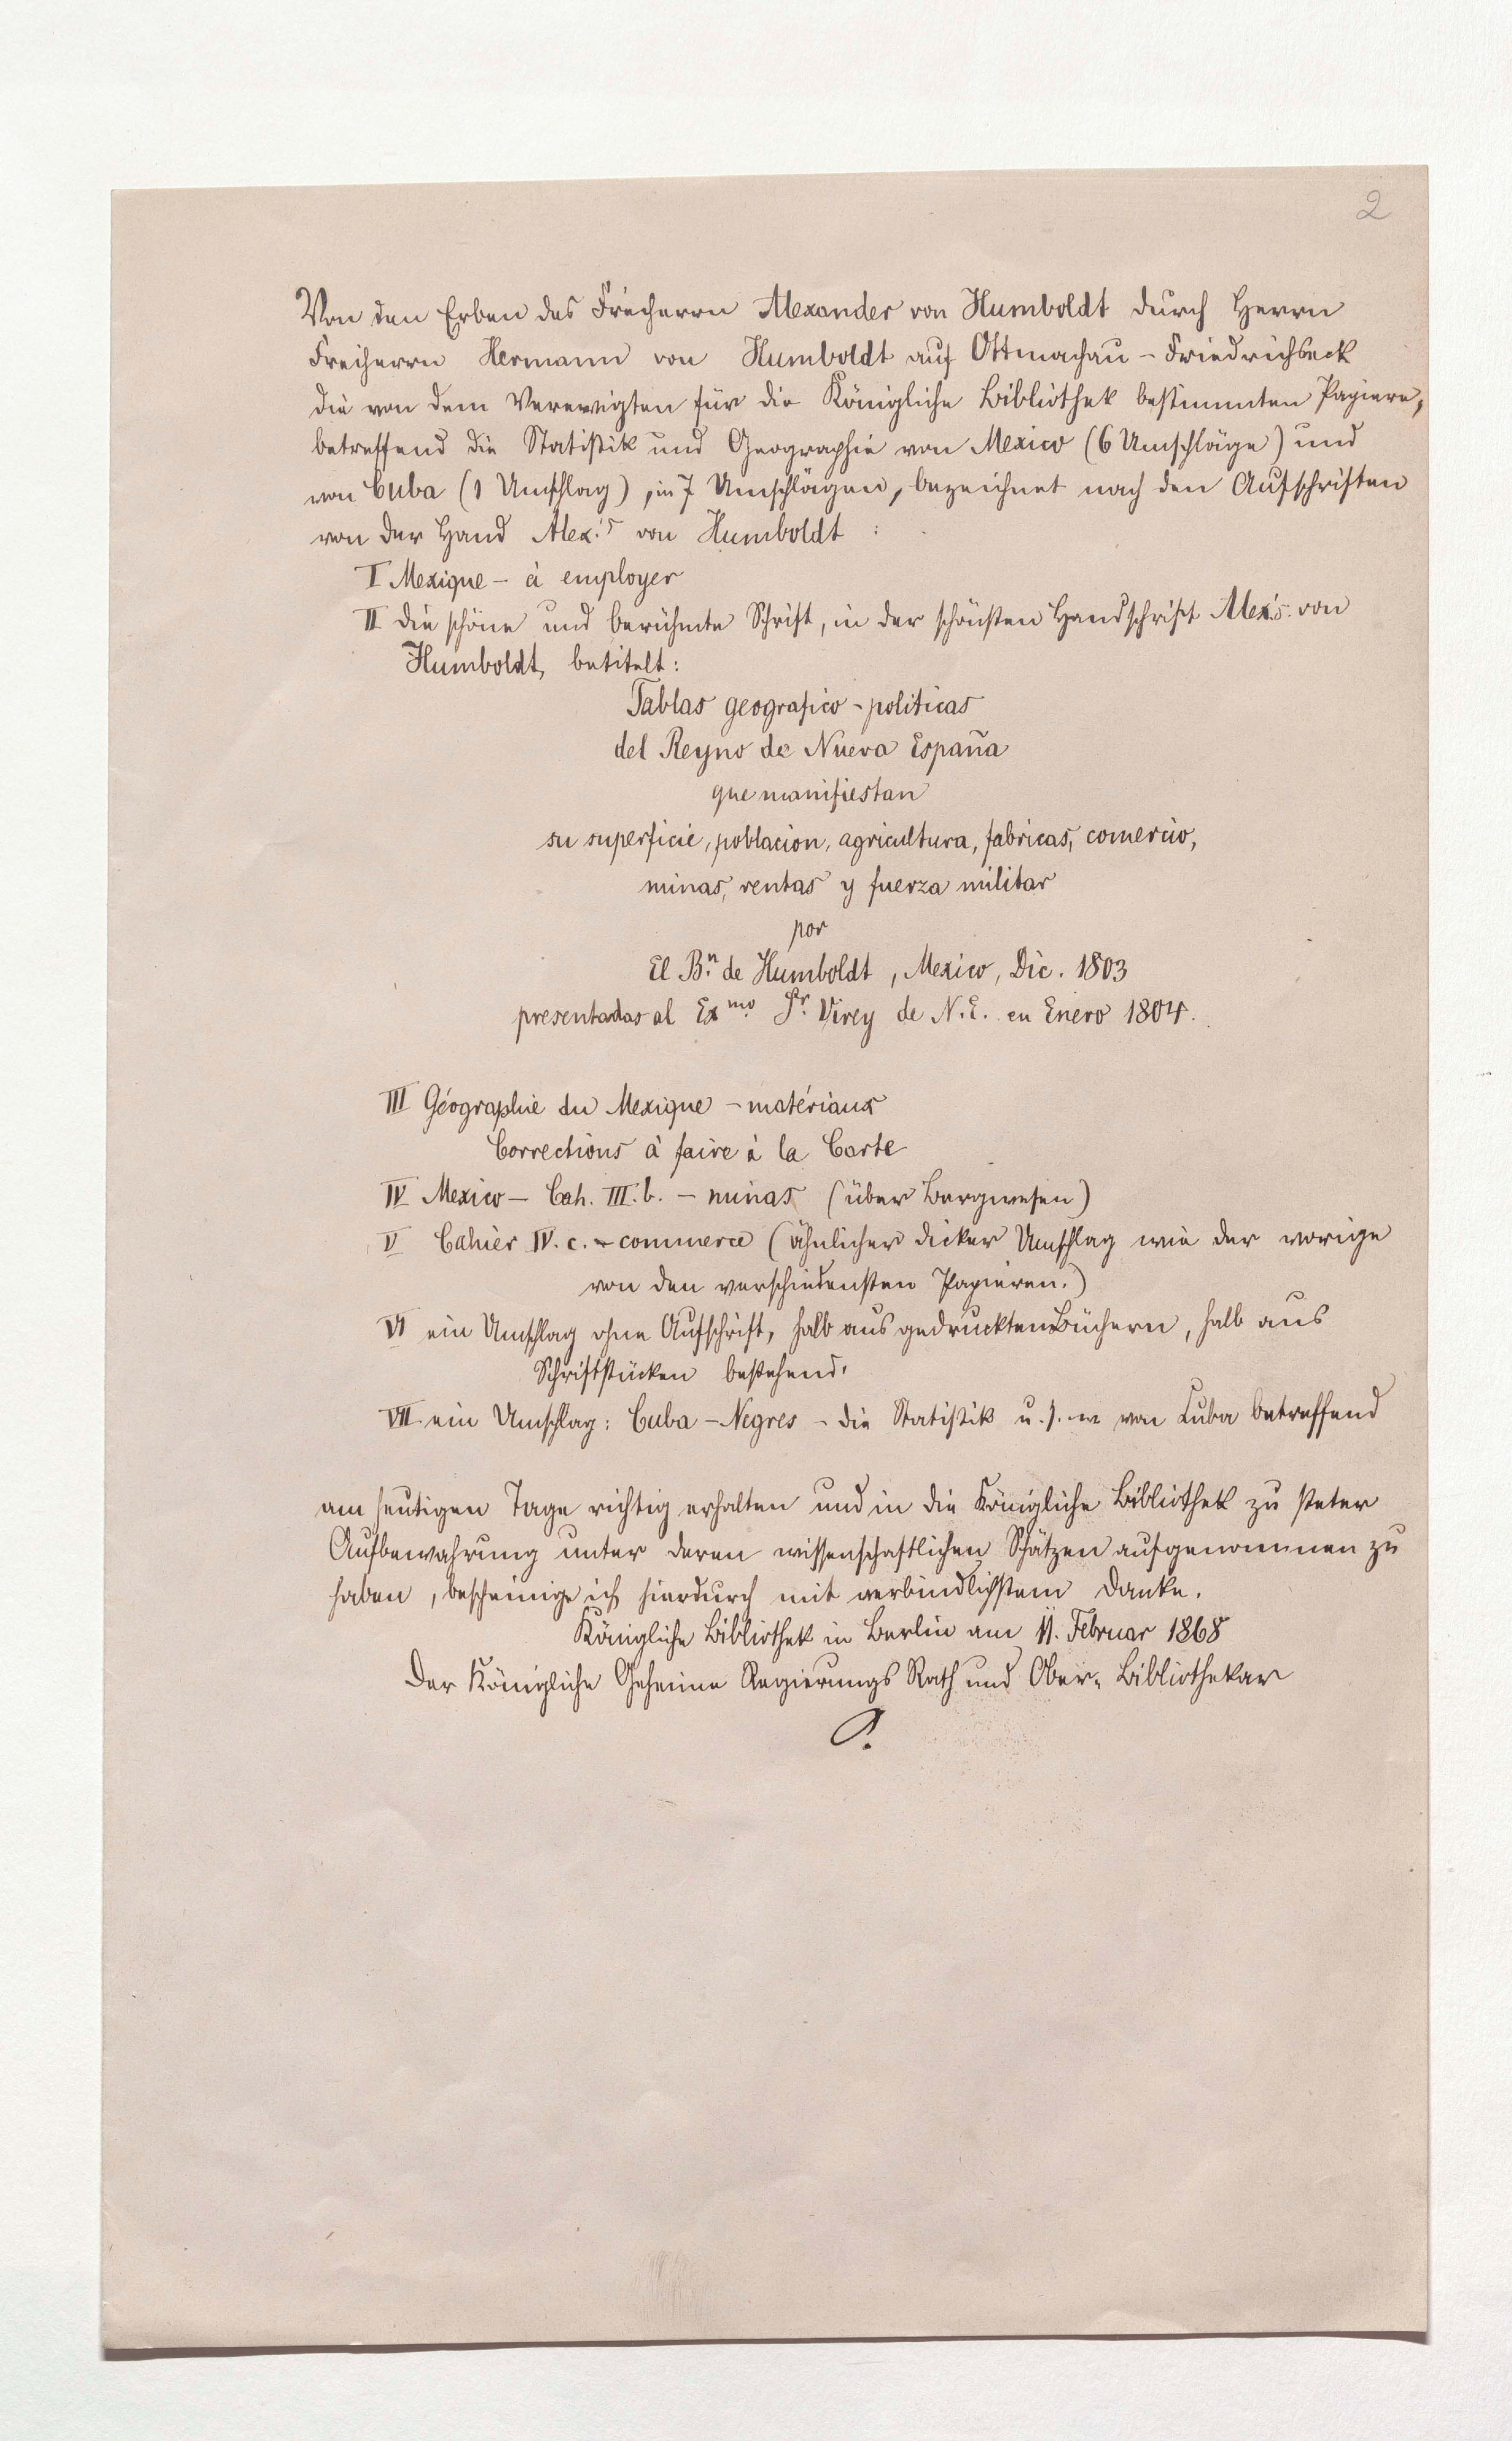 2
Von den Erben des Freiherrn Alexander von Humboldt durch Herrn
Freiherrn Hermann von Humboldt auf Ottmachau - Friedrichseck
die von dem Verewigten für die Königliche Bibliothek bestimmten Papiere,
betreffend die Statistik und Geographie von Mexico (6 Umschläge) und
von Cuba (1 Umschlag), in 7 Umschlägen, bezeichnet nach den Aufschriften
von der Hand Alex.'s von Humboldt :
I Mexique - à employer
II die schöne und berühmte Schrift, in der schönsten Handschrift Alex.'s von
Humboldt, betitelt:
Tablas geografico - politicas
del Reyno de Nueva España
que manifiestan
su superficie, poblacion, agricultura, fabricas, comercio,
minas, rentas y fuerza militar
por
El B.n de Humboldt, Mexico, Dic. 1803
presentadas al Exmo. Sr. Virey de N.E. en Enero 1804.
III Géographie du Mexique - matériaux
Corrections à faire à la Carte
IV Mexico - Cah. III. b. - minas (über Bergwesen)
V Cahier IV. c. - commerce (ähnlicher dicker Umschlag wie der vorige
von den verschiedensten Papieren.)
VI ein Umschlag ohne Aufschrift, halb aus gedruckten Büchern, halb aus
Schriftstücken bestehend.
VII ein Umschlag: Cuba - Negres - die Statistik u. s. w von Cuba betreffend
am heutigen Tage richtig erhalten und in die Königliche Bibliothek zu steter
Aufbewahrung unter deren wissenschaftlichen Schätzen aufgenommen zu
haben, bescheinige ich hierdurch mit verbindlichstem Danke.
Königliche Bibliothek in Berlin am 11. Februar 1868
Der Königliche Geheime Regierungs Rath und Ober-Bibliothekar